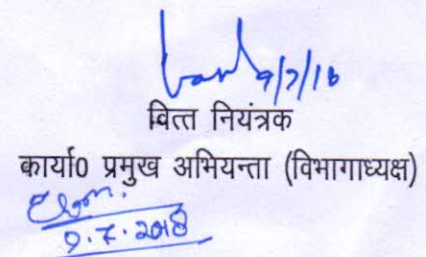 9/7/18
वित्त नियंत्रक
कार्या0 प्रमुख अभियन्ता (विभागाध्यक्ष)
9.7.2018